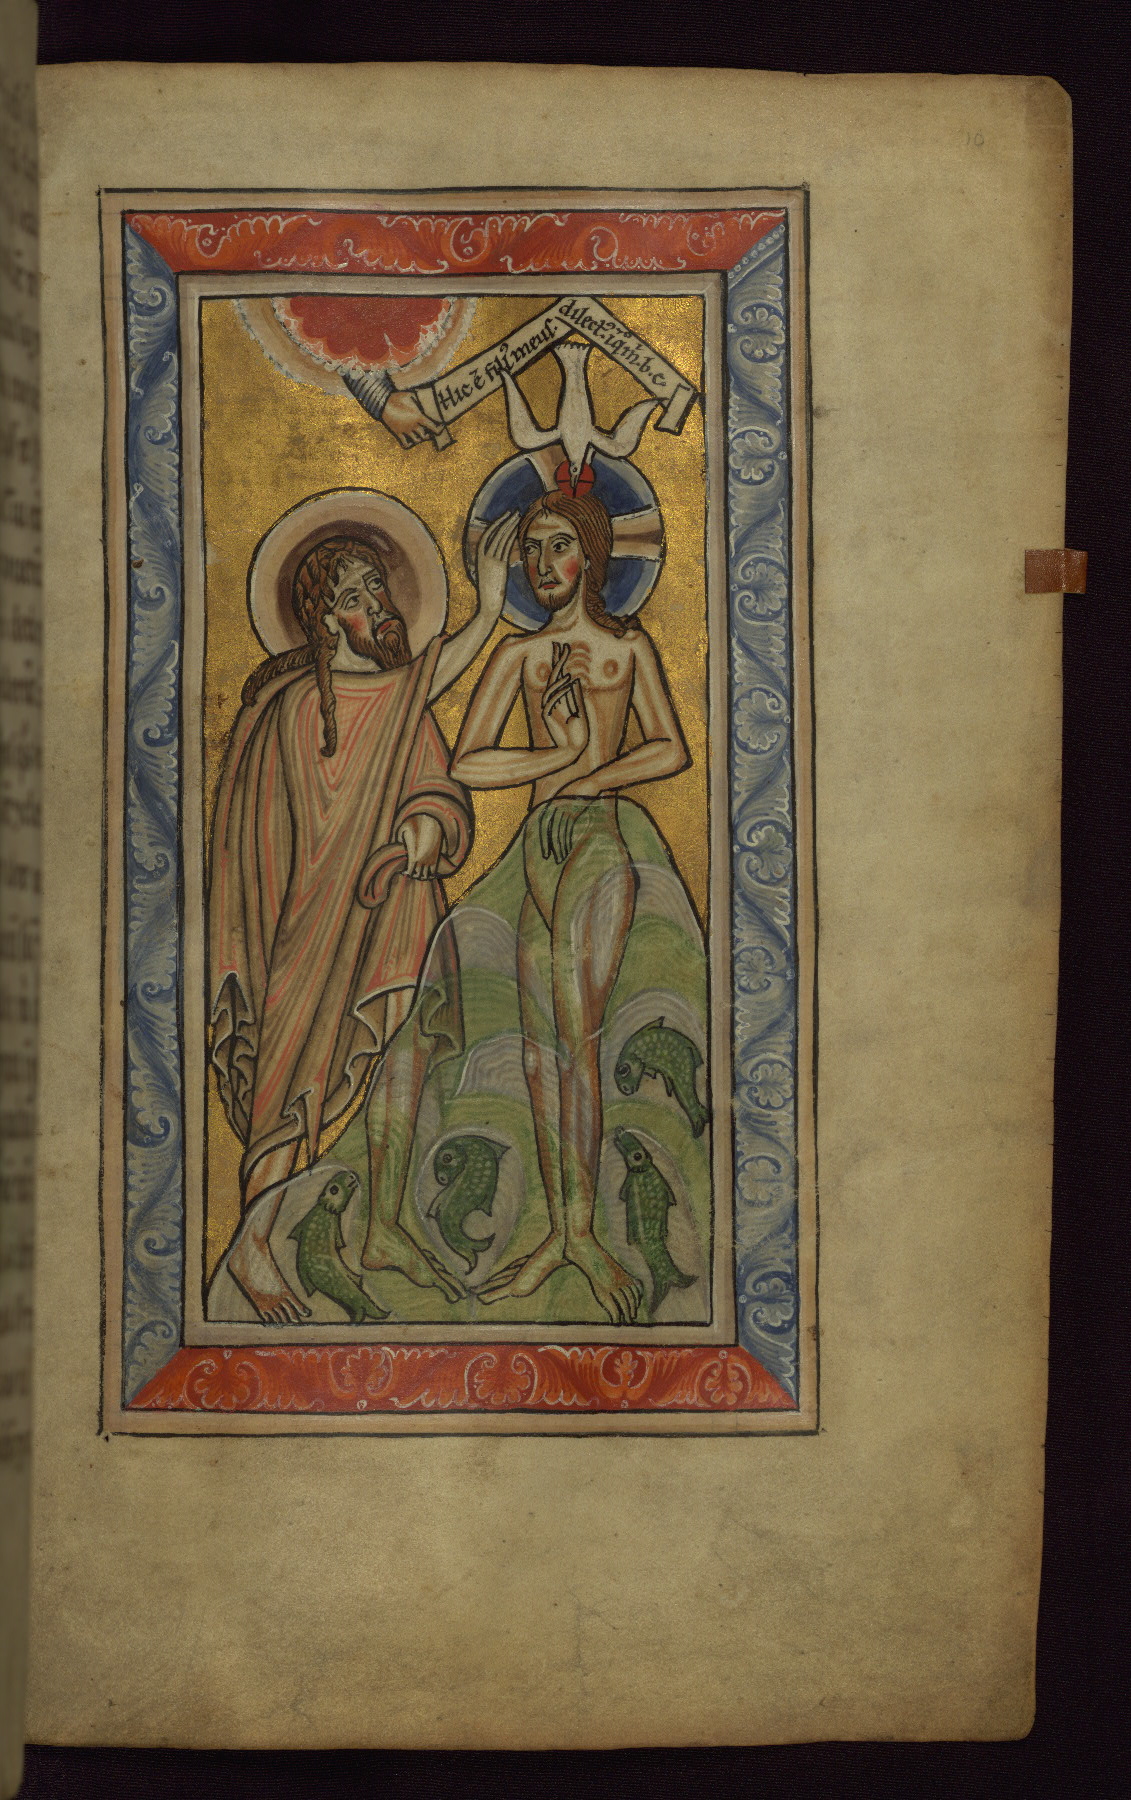 10
Hic ē fili᷒ meus.
dilect᷒. ī q̄ m̄. b. c.